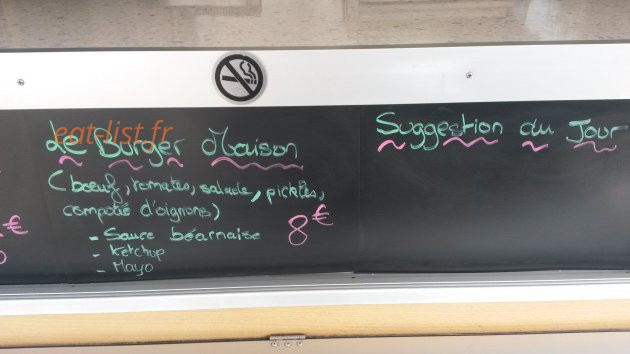 eat-list.fr
Le Burger Maison
(boeuf, tomates, salade, pickles,
compoté d'oignons)
- Sauce béarnaise
- Ketchup
- Mayo
8€
Suggestion du Jour
€